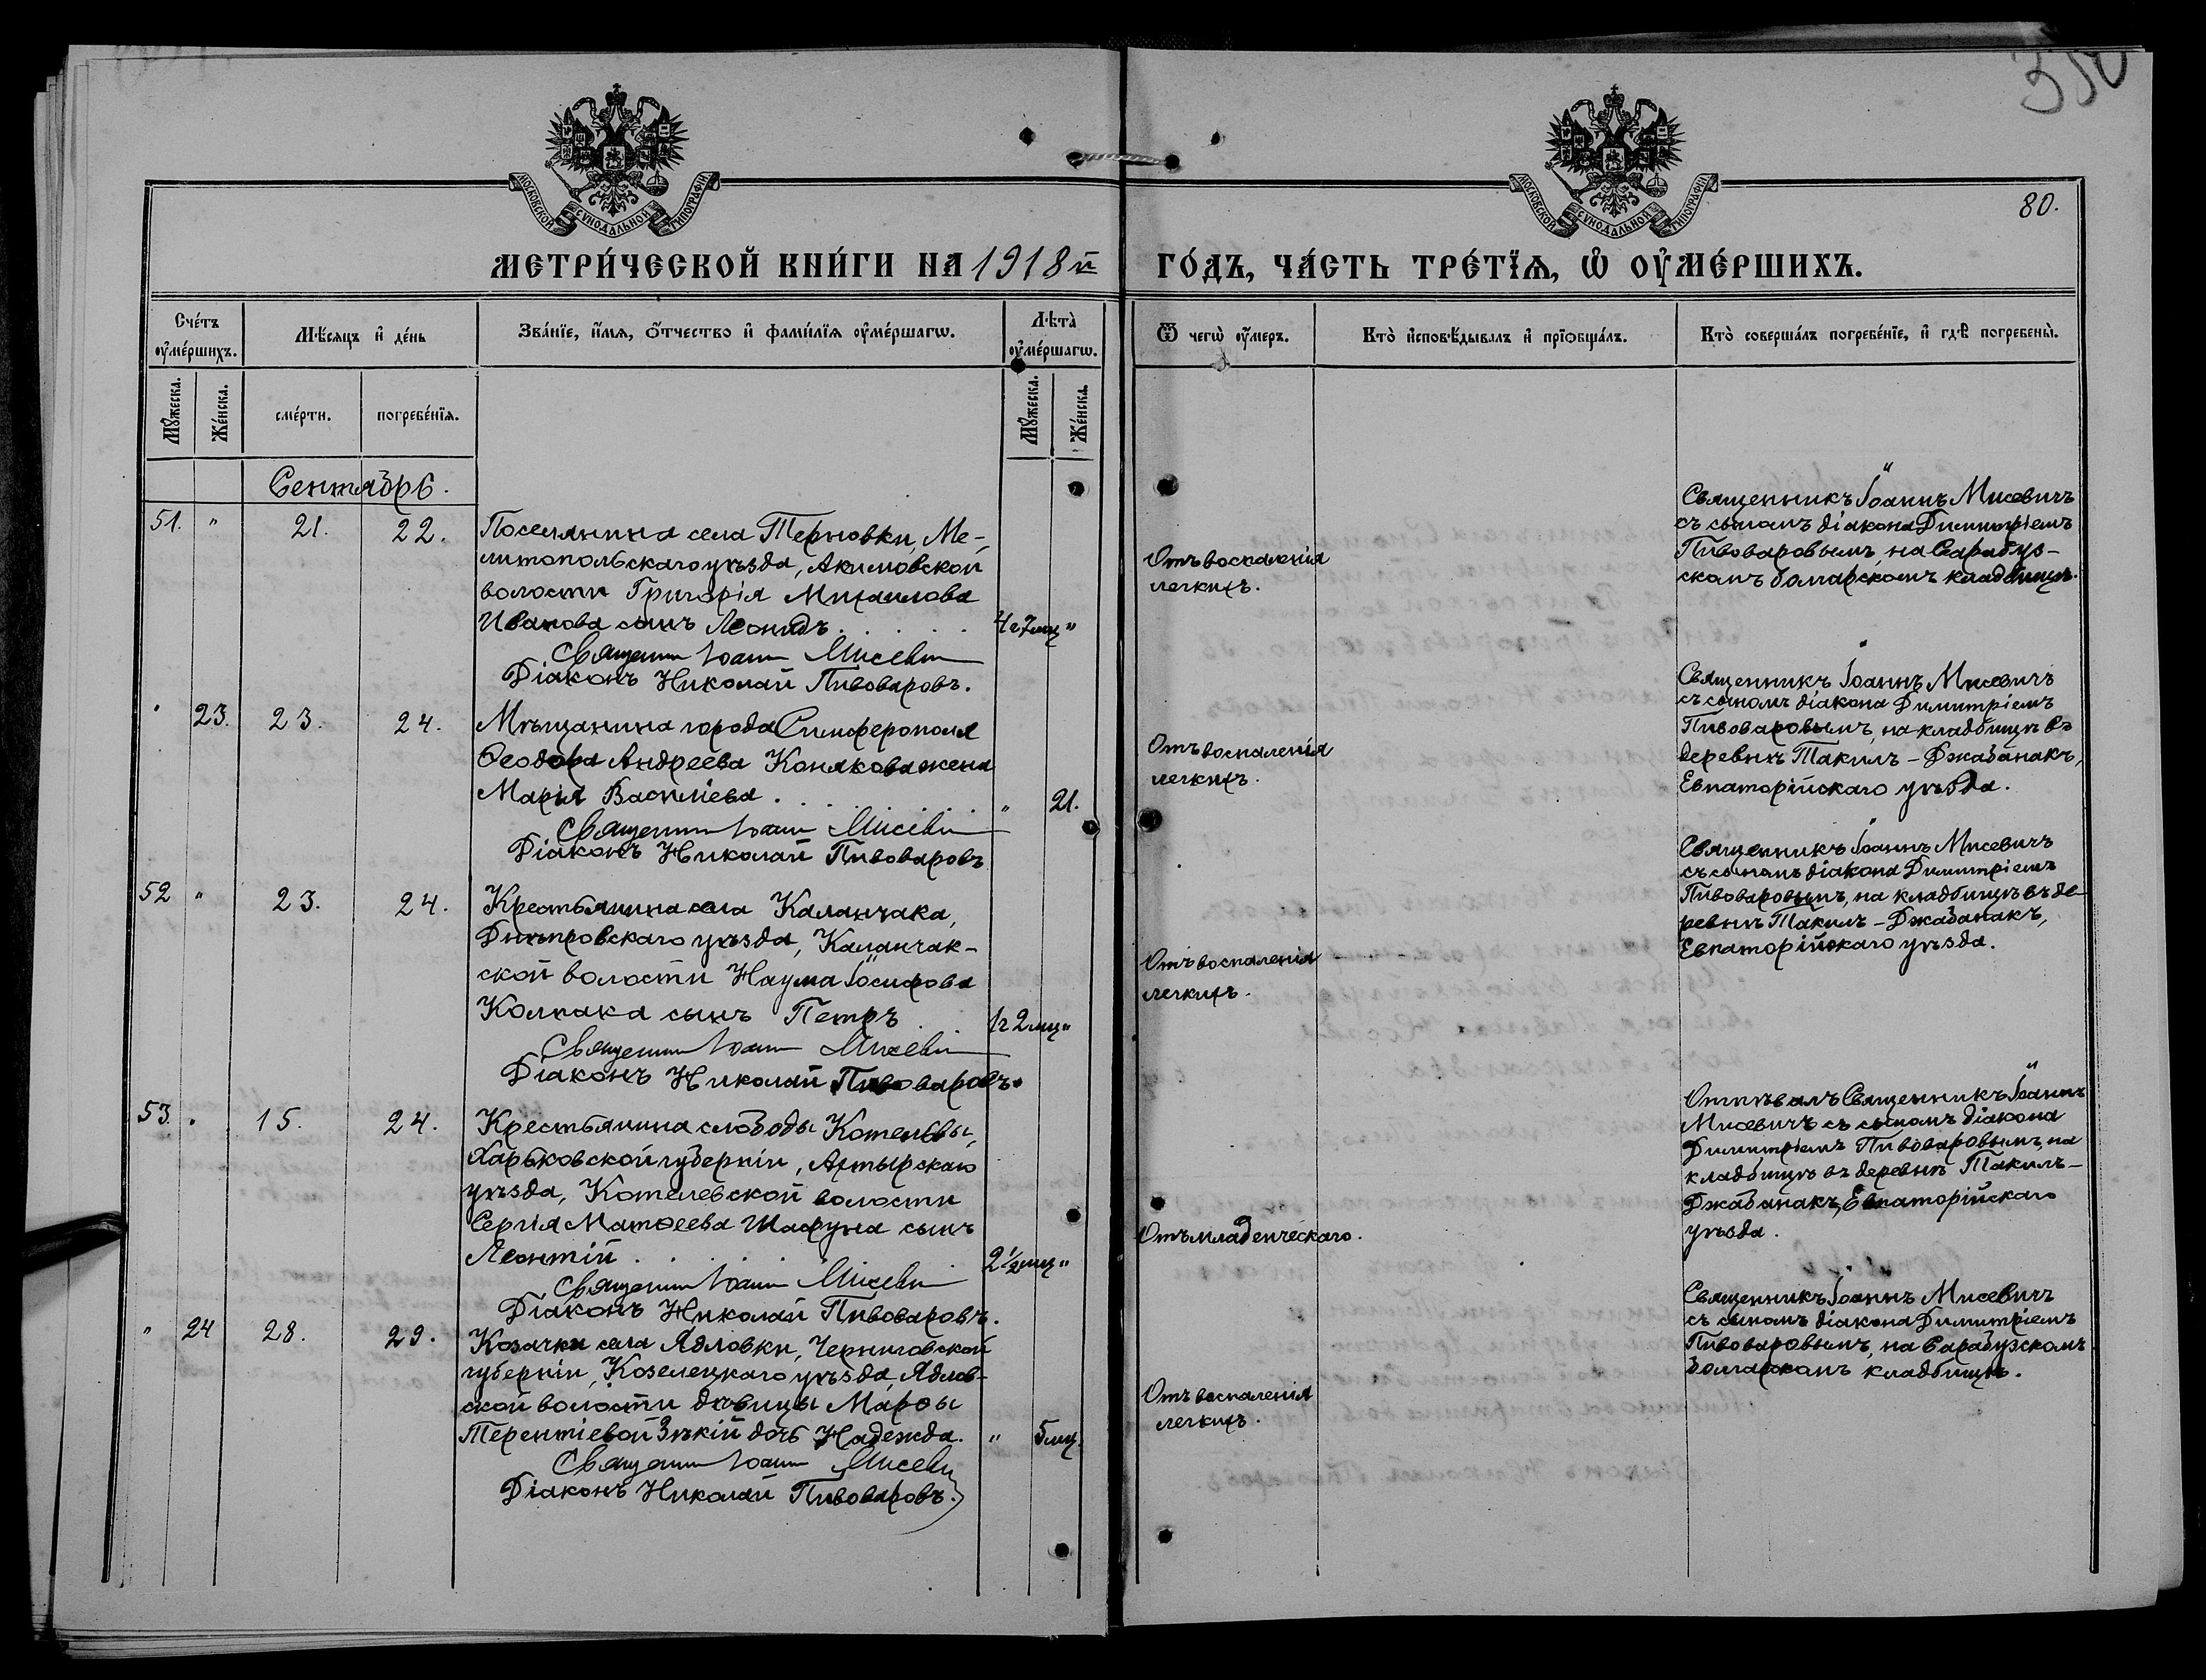 350
80.
МОСКОВСКОЙ СѴНОДАЛЬНОЙ ТИПОГРАФІИ
МОСКОВСКОЙ СѴНОДАЛЬНОЙ ТИПОГРАФІИ
МЕТРИ́ЧЕСКОЙ КНИ́ГИ НА 1918й ГО́ДЪ, ЧА́СТЬ ТРЕ́ТЇѦ, Ѡ҆ ОУ҆МЕ́РШИХЪ.
Сче́тъ оу҆ме́ршихъ.
Мѣ́сяцъ и҆ де́нь
Зва́нїе, и҆́мѧ, ѻ҆́тчество и҆ фами́лїѧ оу҆ме́ршагѡ.
Лѣта̀ оу҆ме́ршагѡ.
Ѿ чегѡ̀ оу҆́меръ.
Кто̀ и҆сповѣ́дывалъ и҆ прїѡбща́лъ.
Кто̀ соверша́лъ погребе́нїе, и҆ гдѣ̀ погребены̀.
Мꙋ́жеска.
Же́нска.
сме́рти.
погребе́нїѧ.
Мꙋ́жеска.
Же́нска.
Сентябрь.
51. " 21. 22.
Поселянина села Терновки, Ме-
литопольскаго уѣзда, Акимовской
волости Григорія Михаилова
Иванова сынъ Леонидъ . . . . . 4 г. 7 мц "
Священникъ Іоаннъ Мисевич
Діаконъ Николай Пивоваровъ.
Отъ воспаленія
легкихъ.
Священникъ Іоаннъ Мисевичъ
съ сыномъ діакона Димитріемъ
Пивоваровымъ, на Сарабуз-
скомъ болгарскомъ кладбищѣ.
" 23. 23. 24.
Мѣщанина города Симферополя
Ѳеодора Андреева Конякова жена
Марія Василіева . . . . . " 21.
Священникъ Іоаннъ Мисевич
Діаконъ Николай Пивоваровъ
Отъ воспаленія
легкихъ.
Священникъ Іоаннъ Мисевичъ
съ сыномъ діакона Димитріемъ
Пивоваровымъ, на кладбищѣ въ
деревнѣ Такилъ-Джабанакъ,
Евпаторійскаго уѣзда.
52 " 23. 24.
Крестьянина села Каланчака,
Днѣпровскаго уѣзда, Каланчак-
ской волости Наума Іосифова
Колпака сынъ Петръ . . 1 г 2 мц "
Священникъ Іоаннъ Мисевич
Діаконъ Николай Пивоваровъ.
Отъ воспаленія
легкихъ.
Священникъ Іоаннъ Мисевичъ
съ сыномъ діакона Димитріемъ
Пивоваровымъ, на кладбищѣ въ де-
ревнѣ Такилъ-Джабанакъ,
Евпаторійскаго уѣзда.
53. " 15. 24.
Крестьянина слободы Котельвы,
Харьковской губерніи, Ахтырскаго
уѣзда, Котелевской волости
Сергія Матѳеева Шафуна сынъ
Леонтій . . . . . 2 1/2 мц "
Священникъ Іоаннъ Мисевич
Діаконъ Николай Пивоваровъ.
Отъ младенческаго.
Отпѣвалъ Священникъ Іоаннъ
Мисевичъ съ сыномъ діакона
Димитріемъ Пивоваровымъ, на
кладбищѣ въ деревнѣ Такилъ-
Джабанакъ, Евпаторійскаго
уѣзда.
" 24 28. 29.
Козачки села Ядловки, Черниговской
губерніи, Козелецкаго уѣзда, Ядлов-
ской волости дѣвицы Марѳы
Терентіевой Зѣкій дочь Надежда. " 5 мц.
Священникъ Іоаннъ Мисевич
Діаконъ Николай Пивоваровъ.
Отъ воспаленія
легкихъ.
Священникъ Іоаннъ Мисевичъ
съ сыномъ діакона Димитріемъ
Пивоваровымъ, на Сарабузскомъ
болгарскомъ кладбищѣ.